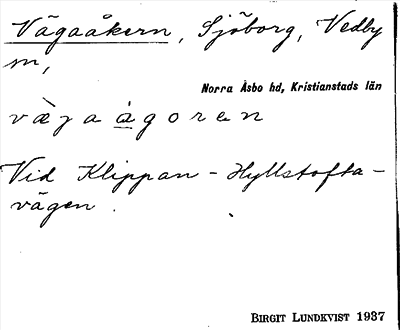 Vägaåkern, Sjöborg, Vedby
m,
Norra Åsbo hd, Kristianstads län
Vid Klippan - Hyllstofta-
vägen.
BIRGIT LUNDKVIST 1937